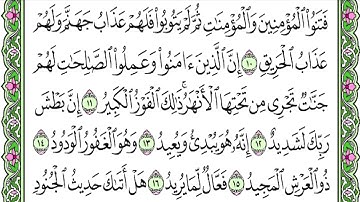 فَتَنُوا۟ ٱلْمُؤْمِنِينَ وَٱلْمُؤْمِنَٰتِ ثُمَّ لَمْ يَتُوبُوا۟ فَلَهُمْ عَذَابُ جَهَنَّمَ وَلَهُمْ
عَذَابُ ٱلْحَرِيقِ ١٠ إِنَّ ٱلَّذِينَ ءَامَنُوا۟ وَعَمِلُوا۟ ٱلصَّٰلِحَٰتِ لَهُمْ
جَنَّٰتٌ تَجْرِى مِن تَحْتِهَا ٱلْأَنْهَٰرُ ۚ ذَٰلِكَ ٱلْفَوْزُ ٱلْكَبِيرُ ١١ إِنَّ بَطْشَ
رَبِّكَ لَشَدِيدٌ ١٢ إِنَّهُۥ هُوَ يُبْدِئُ وَيُعِيدُ ١٣ وَهُوَ ٱلْغَفُورُ ٱلْوَدُودُ ١٤
ذُو ٱلْعَرْشِ ٱلْمَجِيدُ ١٥ فَعَّالٌ لِّمَا يُرِيدُ ١٦ هَلْ أَتَىٰكَ حَدِيثُ ٱلْجُنُودِ